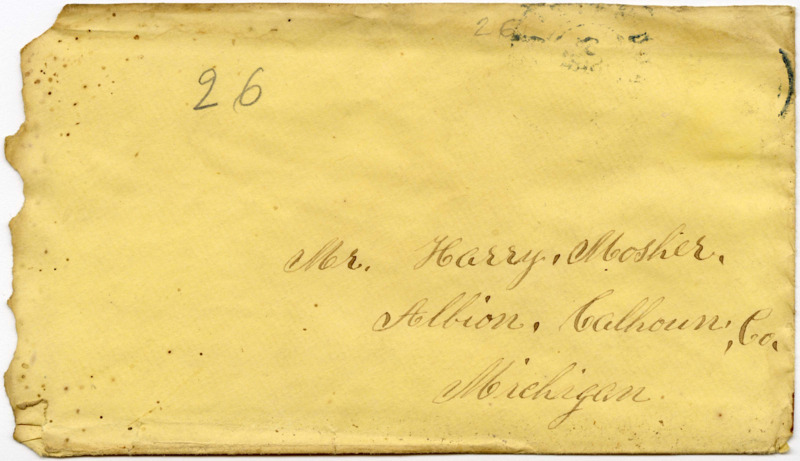 26
26
Mr. Harry. Mosher.
Albion. Calhoun, Co.
Michigan.